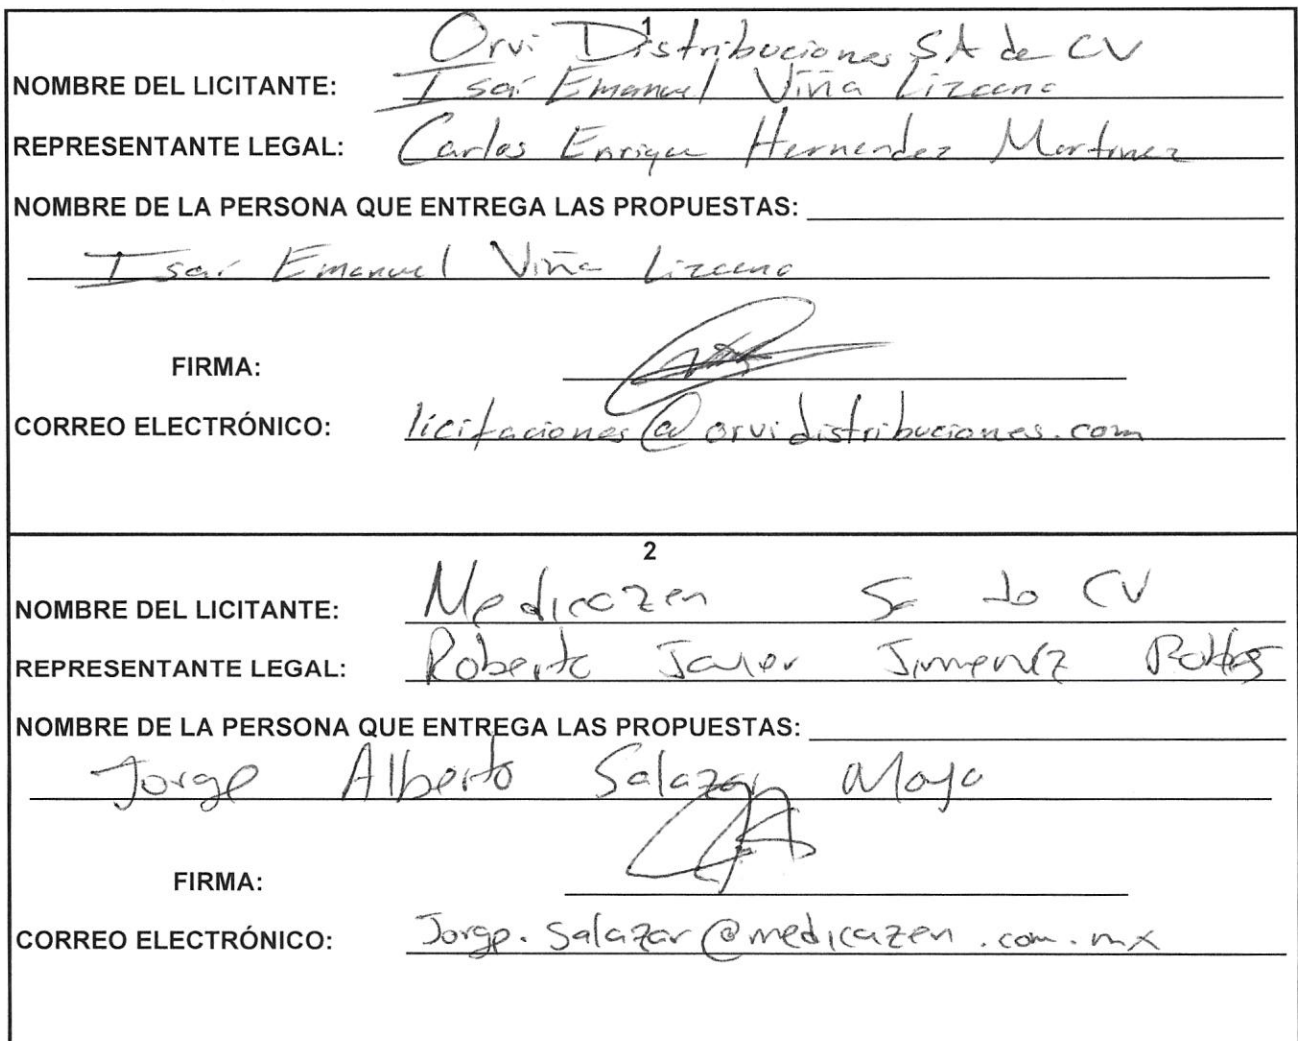 1
Orvi Distribuciones SA de CV
NOMBRE DEL LICITANTE: Isaí Emanuel Viña Lizcano
REPRESENTANTE LEGAL: Carlos Enrique Hernendez Martinez
NOMBRE DE LA PERSONA QUE ENTREGA LAS PROPUESTAS:
Isaí Emanuel Viña Lizcano
FIRMA:
CORREO ELECTRÓNICO: licitaciones@orvidistribuciones.com
2
NOMBRE DEL LICITANTE: Medicazen Sa de CV
REPRESENTANTE LEGAL: Roberto Javier Jimenez
NOMBRE DE LA PERSONA QUE ENTREGA LAS PROPUESTAS:
Jorge Alberto Salazar Mayo
FIRMA:
CORREO ELECTRÓNICO: Jorge.Salazar@medicazen.com.mx